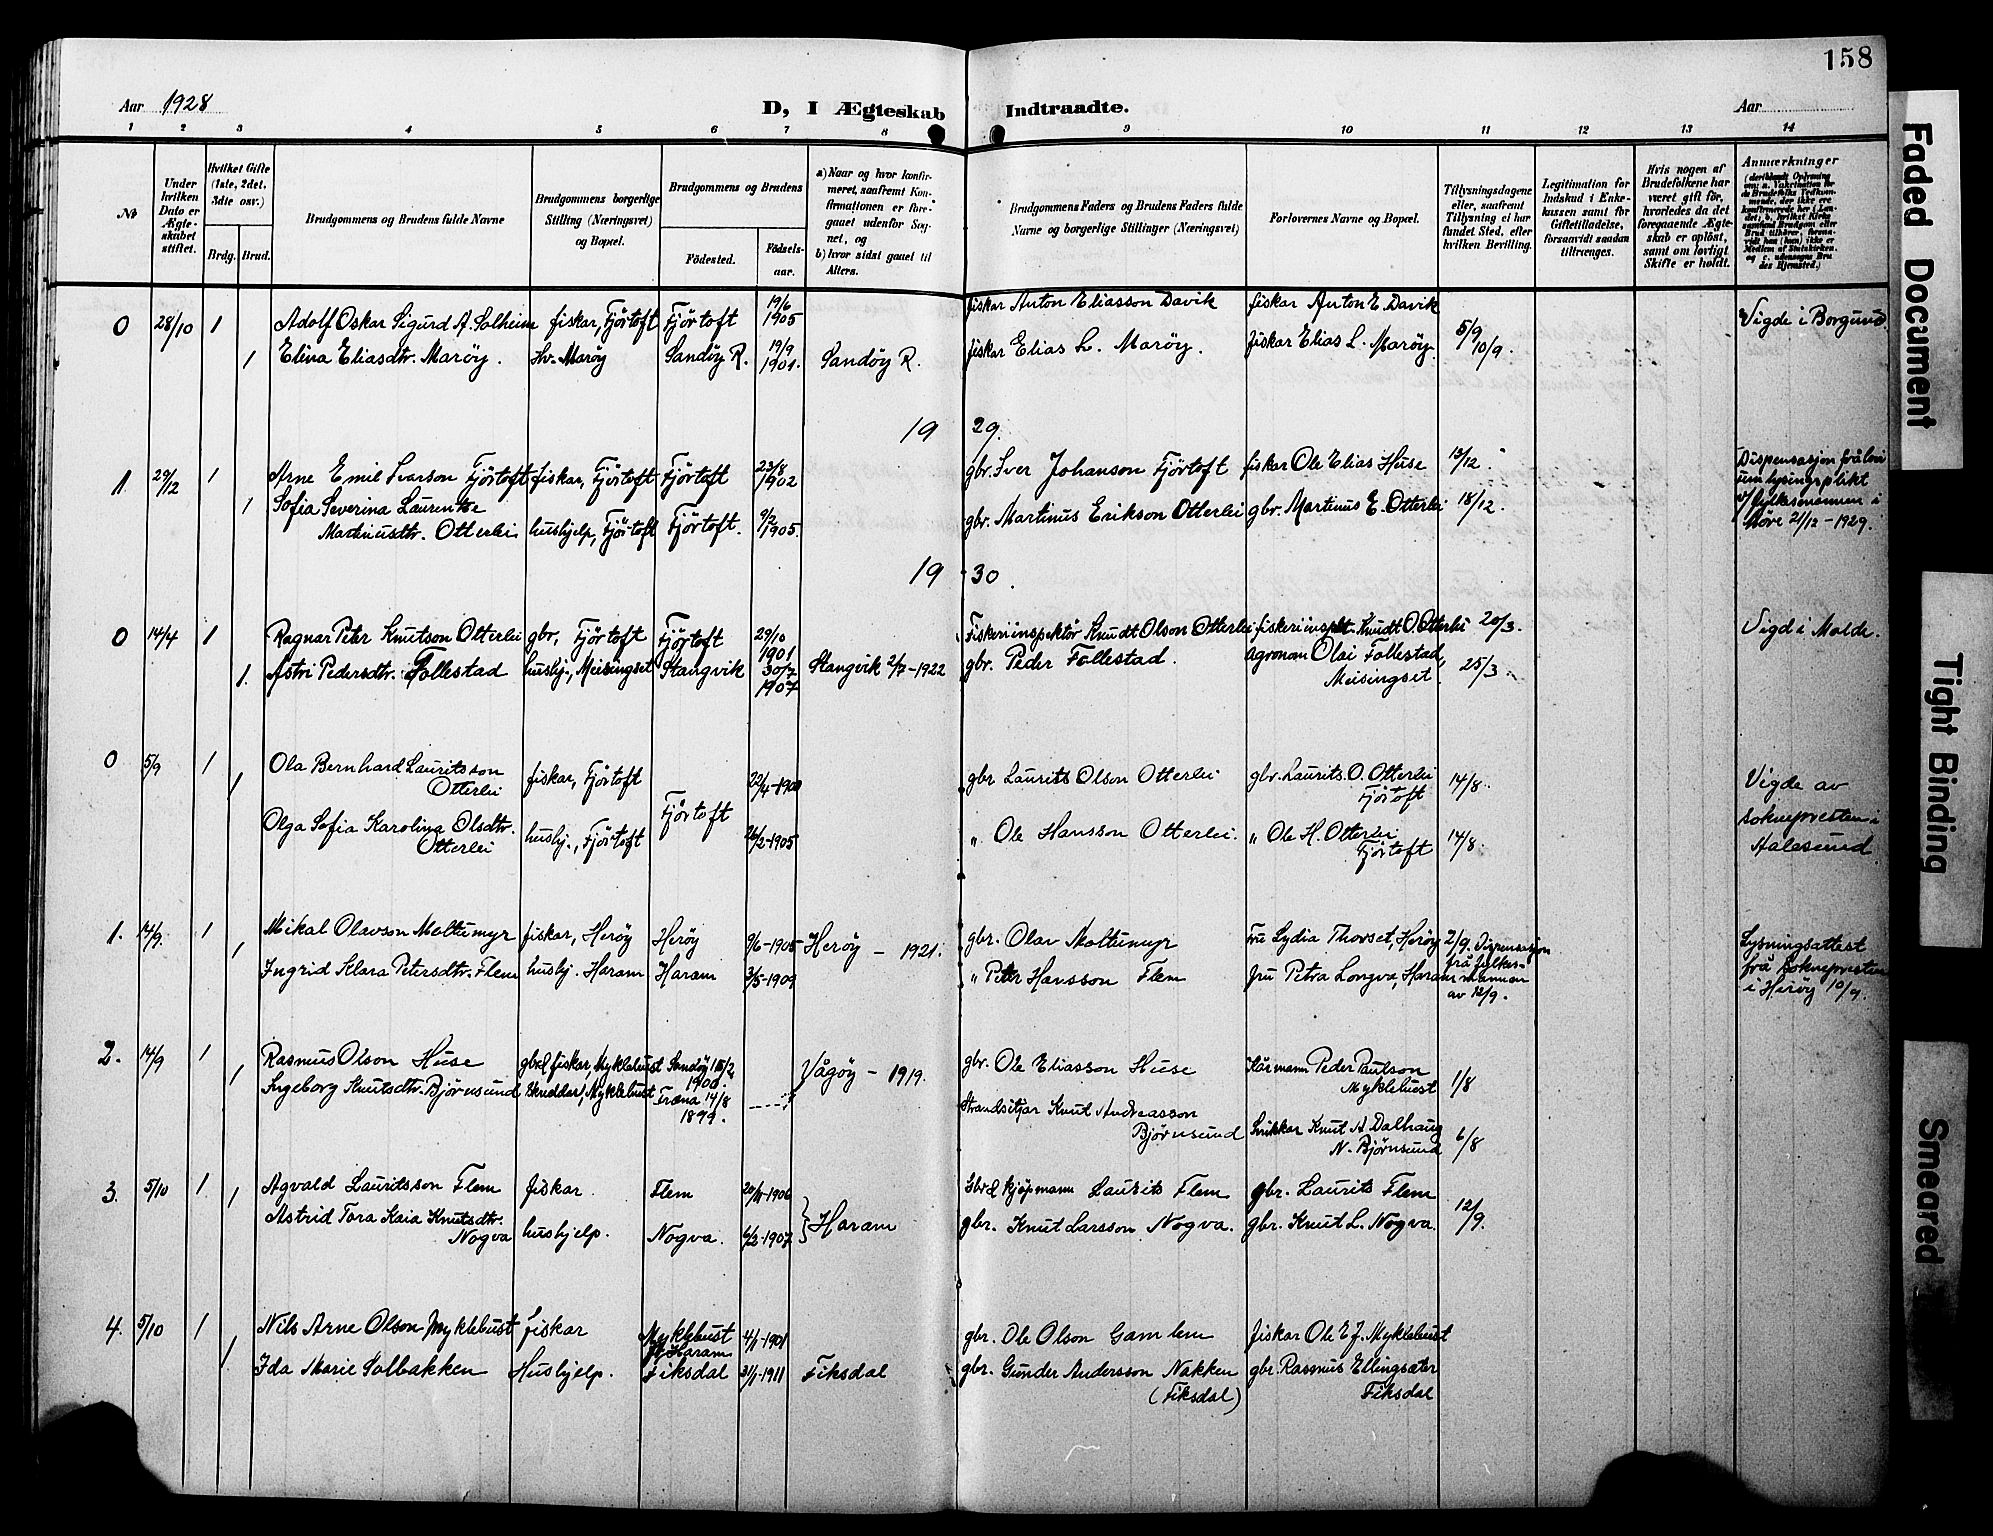 158
Aar 1928
D, I Ægteskab Indtraadte.
Aar
1 2 3 4 5 6 7 8 9 10 11 12 13 14
No
Under hvilken Dato er Ægteskabet stiftet.
Hvilket Gifte (1ste, 2det, 3die osv.)
Brdg. Brud.
Brudgommens og Brudens fulde Navne
Brudgommens borgerlige Stilling (Næringsvei) og Bopæl.
Brudgommens og Brudens
Födested.
Födselsaar.
a) Naar og hvor konfirmeret, saafremt Konfirmationen er foregaaet udenfor Sognet, og
b) hvor sidst gaaet til Alters.
Brudgommens Faders og Brudens Faders fulde Navne og borgerlige Stillinger (Næringsvei)
Forlovernes Navne og Bopæl.
Tillysningsdagene eller, saafremt Tillysning ei har fundet Sted, efter hvilken Bevilling.
Legitimation for Indskud i Enkekassen samt for Giftetilladelse, forsaavidt saadan tiltrænges.
Hvis nogen af Brudefolkene har været gift før, hvorledes da det foregaaende Ægteskab er opløst, samt om lovligt Skifte er holdt.
Anmærkninger
0 28/10 1 Adolf Oskar Sigurd A. Solheim fiskar, Fjörtoft Fjörtoft 19/6 1905 fiskar Anton Eliasson Davik fiskar Anton E. Davik 5/9 Vigde i Borgund.
1 Elina Eliasdtr. Maröy. Hv. Maröy Sandöy R. 19/9 1901. Sandöy R. fiskar Elias L. Maröy. fiskar Elias L. Maröy. 10/9.
19 29.
1. 29/12 1 Arne Emil Ivarson Fjörtoft fiskar, Fjörtoft Fjörtoft 23/8 1902 gbr. Iver Johanson Fjörtoft fiskar Ole Elias Huse 13/12. Dispensasjon frå
1 Sofia Severina Laurentse
Martinusdtr. Otterlei hushjelp, Fjörtoft Fjörtoft. 9/2 1905. gbr. Martinus Erikson Otterlei gbr. Martinus E. Otterlei 18/12. v/ fylkesmannen i Möre 21/12 - 1929.
19 30.
0 14/4 1 Ragnar Peter Knutson Otterlei gbr, Fjörtoft Fjörtoft 29/10 1901 Fiskeriinspektör Knudt Olson Otterlei fiskeriinspekt. Knudt O. Otterlei 20/3. Vigd i Molde.
1. Astri Pedersdtr. Follestad hushj., Meisingset Stangvik 30/7 1907 Stangvik 2/7 - 1922 gbr. Peder Follestad. Agronom Olai Follestad, Meisingset. 25/3.
0 5/9 1 Ola Bernhard Lauritsson Otterlei fiskar, Fjörtoft 22/4-1900 gbr Laurits Olson Otterlei gbr. Laurits O. Otterlei Fjörtoft 14/8. Vigde av soknepresten i Aalesund
1 Olga Sofia Karolina Olsdtr. Otterlei hushj., Fjörtoft Fjörtoft 26/2-1905 " Ole Hansson Otterlei. " Ole H. Otterlei Fjörtoft 14/8.
1. 14/9. 1 Mikal Olavson Moltumyr fiskar, Heröy Heröy 9/6-1905 Heröy - 1921. gbr. Olav Moltumyr Fru Lydia Thorset, Heröy 2/9. Dispensasjon frå fylkesmannen av 12/9. Lysningsattest frå soknepresten i Heröy 10/9.
1 Ingrid Klara Petersdtr. Flem hushj. Haram Haram 3/5-1909 " Peter Hansson Flem fru Petra Longva, Haram
2. 14/9 1 Rasmus Olson Huse gbr & fiskar, Myklebust Sandöy 1900. gbr. Ole Eliasson Huse Peder Paulson Myklebust 1/8
1 Ingeborg Knutsdtr. Björnsund Myklebust Fræna 14/8 1899. Vågöy - 1919. Strandsitjar Knut Andreasson Björnsund Snikkar Knut A. Dalhaug N. Björnsund 6/8
3. 5/10 1 Agvald Lauritsson Flem fiskar. Flem 1906 Gbr & kjöpmann Laurits Flem gbr. Laurits Flem 12/9.
1 Astrid Tora Kaia Knutsdtr. Nogva hushjelp. Nogva. 6/2-1907 } Haram gbr. Knut Larsson Nogva. gbr. Knut L. Nogva.
4. 5/10 1 Nils Arne Olson Myklebust Fiskar Myklebust Haram 4/1-1901 gbr. Ole Olson Gamlem fiskar Ole E. J. Myklebust
1 Ida Marie Solbakken Hushjelp. Fiksdal 31/1-1911 Fiksdal gbr. Gunder Andersson Nakken (Fiksdal) gbr. Rasmus Ellingsæter Fiksdal
Faded Document
Tight Binding
Smeared